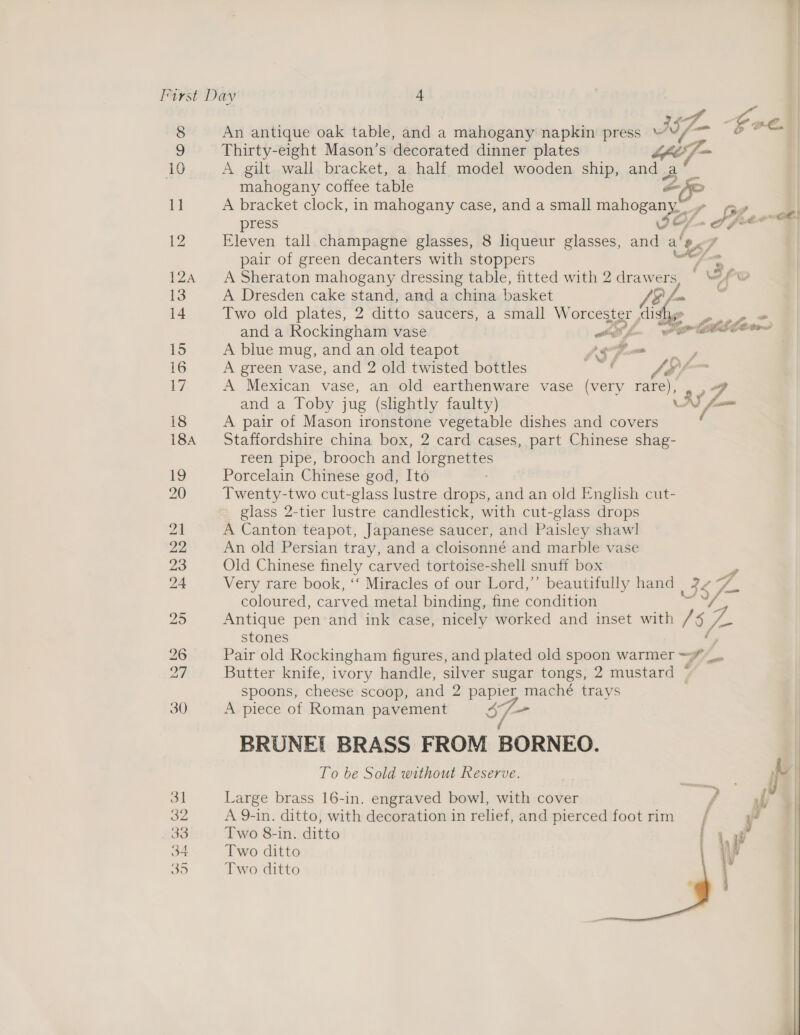 First Day 4
8 An antique oak table, and a mahogany napkin press 35/-
9 Thirty-eight Mason's decorated dinner plates
10 A gilt wall bracket, a half model wooden ship, and a
mahogany coffee table
11 A bracket clock, in mahogany case, and a small mahogany
press
12 Eleven tall champagne glasses, 8 liqueur glasses, and a
pair of green decanters with stoppers
12A A Sheraton mahogany dressing table, fitted with 2 drawers
13 A Dresden cake stand, and a china basket
14 Two old plates, 2 ditto saucers, a small Worcester dish
and a Rockingham vase
15 A blue mug, and an old teapot
16 A green vase, and 2 old twisted bottles
17 A Mexican vase, an old earthenware vase (very rare),
and a Toby jug (slightly faulty)
18 A pair of Mason ironstone vegetable dishes and covers
18A Staffordshire china box, 2 card cases, part Chinese shag-
reen pipe, brooch and lorgnettes
19 Porcelain Chinese god, Ito
20 Twenty-two cut-glass lustre drops, and an old English cut-
glass 2-tier lustre candlestick, with cut-glass drops
21 A Canton teapot, Japanese saucer, and Paisley shawl
22 An old Persian tray, and a cloisonné and marble vase
23 Old Chinese finely carved tortoise-shell snuff box
24 Very rare book, “ Miracles of our Lord,” beautifully hand 35/-
coloured, carved metal binding, fine condition
25 Antique pen and ink case, nicely worked and inset with 15/-
stones
26 Pair old Rockingham figures, and plated old spoon warmer
27 Butter knife, ivory handle, silver sugar tongs, 2 mustard
spoons, cheese scoop, and 2 papier maché trays
30 A piece of Roman pavement 5/-
BRUNEI BRASS FROM BORNEO.
To be Sold without Reserve.
31 Large brass 16-in. engraved bowl, with cover
32 A 9-in. ditto, with decoration in relief, and pierced foot rim
33 Two 8-in. ditto
34 Two ditto
35 Two ditto